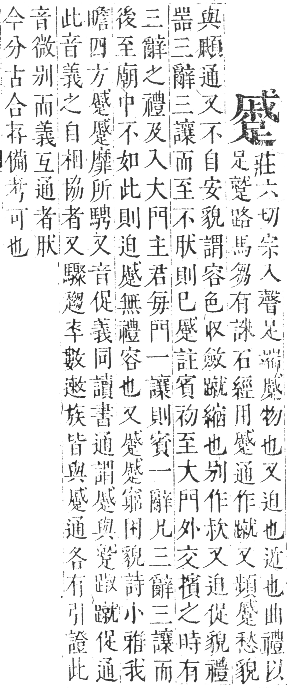 蹙
莊六切宗入聲足端蹙物也又迫也近也曲禮以
足蹵路馬芻有誅石經用蹙通作蹴又頻蹙愁貌
與顣通又不自安貌謂容色收斂蹴縮也别作欶又迫從貌禮
器三辭三讓而至不肰則已蹙註賓初至大門外交擯之時有
三辭之禮及入大門主君每門一讓則賓一辭凡三辭三讓而
後至廟中不如此則迫蹙無禮容也又蹙蹙窮困貌詩小雅我
瞻四方蹙蹙靡所騁又音促義同讀書通謂蹙與蹵踧蹴促通
此音義之自相協者又驟趨卒數遬族皆與蹙通各有引證此
音微别而義互通者肰
今分古合存備考可也